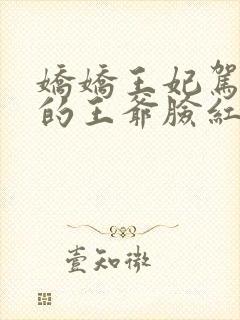 嬌嬌王妃駕
的王爺臉紅
壹知微